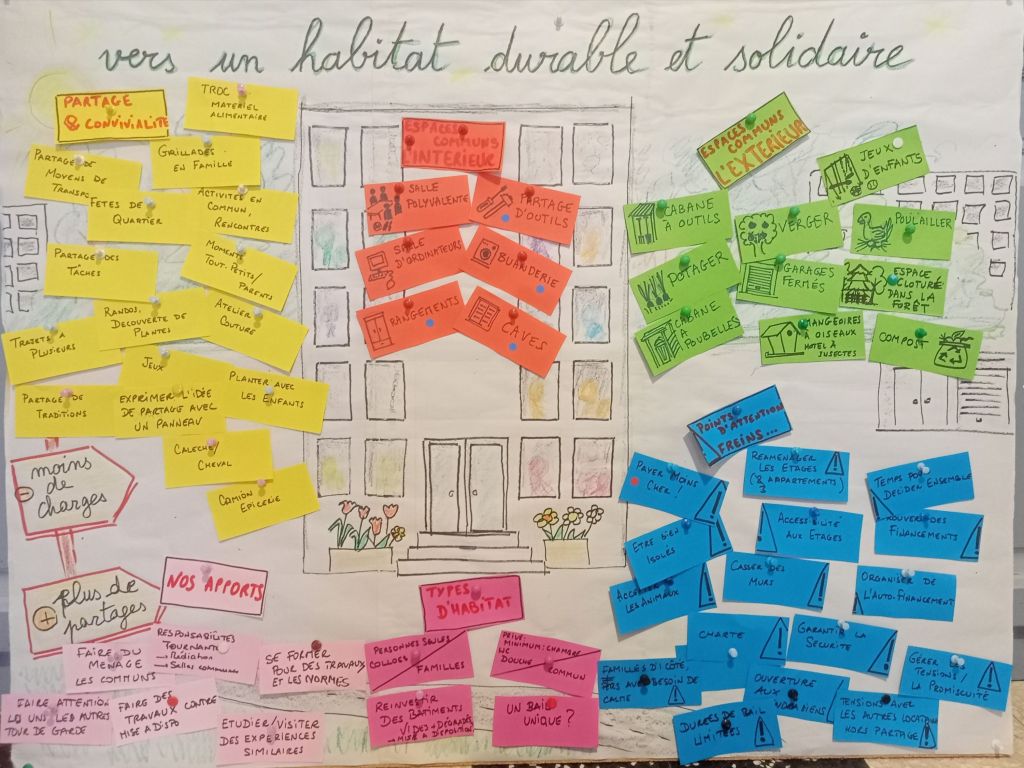 vers un habitat durable et solidaire
PARTAGE
& CONVIVIALITÉ
TROC
MATERIEL
ALIMENTAIRE
PARTAGE DE
MOYENS DE
GRILLADES
EN FAMILLE
FETES DE
QUARTIER
ACTIVITÉS EN
COMMUN,
RENCONTRES
PARTAGE DES
TÂCHES
MOMENTS
TOUT-PETITS/
PARENTS
RANDOS,
DECOUVERTE DE
PLANTES
ATELIER
COUTURE
TRAJETS A
PLUSIEURS
JEUX
PLANTER AVEC
LES ENFANTS
PARTAGE DE
TRADITIONS
EXPRIMER L'IDÉE
DE PARTAGE AVEC
UN PANNEAU
CALECHE
CHEVAL
CAMION
EPICERIE
- moins
de
charges
+ plus de
partages
ESPACES
COMMUNS
L'INTERIEUR
SALLE
POLYVALENTE
PARTAGE
D'OUTILS
SALLE
D'ORDINATEURS
BUANDERIE
RANGEMENTS
CAVES
ESPACES
COMMUNS
L'EXTERIEUR
JEUX
D'ENFANTS
CABANE
A OUTILS
VERGER
POULAILLER
POTAGER
GARAGES
FERMÉS
ESPACE
CLOTURÉ
DANS LA
FORÊT
CABANE
A
POUBELLES
MANGEOIRES
A OISEAUX
HOTEL A
INSECTES
COMPOST
POINTS
D'ATTENTION
FREINS...
PAYER MOINS
CHER !
REAMENAGER
LES ETAGES
(8 APPARTEMENTS)
3
TEMPS POUR
DECIDER ENSEMBLE
ETRE BIEN
ISOLÉS
ACCESSIBILITÉ
AUX ETAGES
TROUVER DES
FINANCEMENTS
LES ANIMAUX
CASSER DES
MURS
ORGANISER DE
L'AUTO-FINANCEMENT
CHARTE
GARANTIR LA
SECURITE
GÉRER LES
TENSIONS/
LA PROMISCUITÉ
FAMILLES D'1 COTÉ,
BESOIN DE
CALME
OUVERTURE
AUX
DURÉES DE BAIL
LIMITÉES
TENSIONS AVEC
LES AUTRES
HORS PARTAGE
NOS APPORTS
FAIRE DU
MÉNAGE
LES COMMUNS
RESPONSABILITES
TOURNANTES
→ Rédaction
→ Salles communes
SE FORMER
POUR DES TRAVAUX
ET LES NORMES
FAIRE ATTENTION
LES UNS LES AUTRES
TOUR DE GARDE
FAIRE DES
TRAVAUX CONTRE
MISE A DISPO
ETUDIER/VISITER
DES EXPERIENCES
SIMILAIRES
TYPES
D'HABITAT
PERSONNES SEULES
COLLOCS
FAMILLES
PRIVÉ
MINIMUM: CHAMBRE
WC
DOUCHE
COMMUN
REINVESTIR
DES BATIMENTS
VIDES + DÉGRADÉS
→ MISE A DISPOSITION
UN BAIL
UNIQUE ?